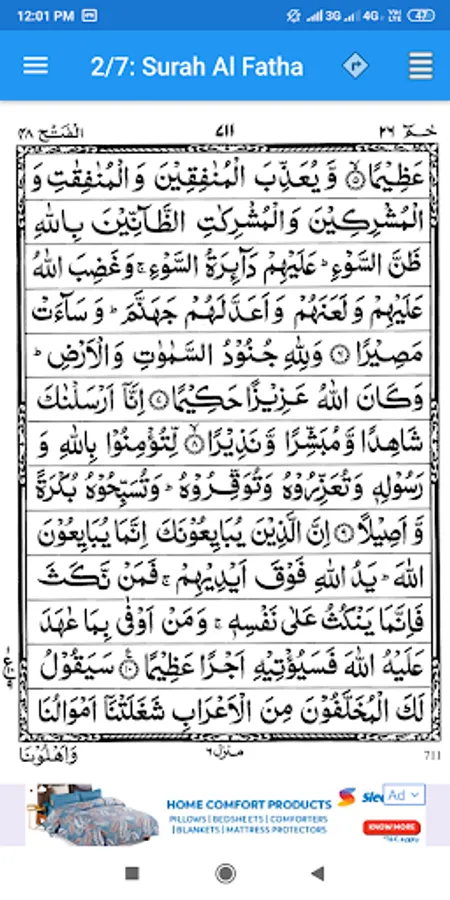 12:01 PM 3G 4G VoLTE 47
2/7: Surah Al Fatha
حٰمٓ ٢٦ ٧١١ الفَتْح ٤٨
عَظِيْمًا ۟ۙ۝٥ وَّيُعَذِّبَ الْمُنٰفِقِيْنَ وَالْمُنٰفِقٰتِ وَ
الْمُشْرِكِيْنَ وَالْمُشْرِكٰتِ الظَّآنِّيْنَ بِاللّٰهِ
ظَنَّ السَّوْءِ ؕ عَلَيْهِمْ دَآئِرَةُ السَّوْءِ ۚ وَغَضِبَ اللّٰهُ
عَلَيْهِمْ وَلَعَنَهُمْ وَاَعَدَّ لَهُمْ جَهَنَّمَ ؕ وَسَآءَتْ
مَصِيْرًا ۝٦ وَلِلّٰهِ جُنُوْدُ السَّمٰوٰتِ وَالْاَرْضِ ؕ
وَكَانَ اللّٰهُ عَزِيْزًا حَكِيْمًا ۝٧ اِنَّاۤ اَرْسَلْنٰكَ
شَاهِدًا وَّمُبَشِّرًا وَّنَذِيْرًا ۙ۝٨ لِّتُؤْمِنُوْا بِاللّٰهِ وَ
رَسُوْلِهٖ وَتُعَزِّرُوْهُ وَتُوَقِّرُوْهُ ؕ وَتُسَبِّحُوْهُ بُكْرَةً
وَّاَصِيْلًا ۝٩ اِنَّ الَّذِيْنَ يُبَايِعُوْنَكَ اِنَّمَا يُبَايِعُوْنَ
اللّٰهَ ؕ يَدُ اللّٰهِ فَوْقَ اَيْدِيْهِمْ ۚ فَمَنْ نَّكَثَ
فَاِنَّمَا يَنْكُثُ عَلٰى نَفْسِهٖ ۚ وَمَنْ اَوْفٰى بِمَا عٰهَدَ
عَلَيْهُ اللّٰهَ فَسَيُؤْتِيْهِ اَجْرًا عَظِيْمًا ۝١٠ سَيَقُوْلُ
لَكَ الْمُخَلَّفُوْنَ مِنَ الْاَعْرَابِ شَغَلَتْنَاۤ اَمْوَالُنَا
وَاَهْلُوْنَا منزل ٦ 711
HOME COMFORT PRODUCTS
PILLOWS | BEDSHEETS | COMFORTERS
| BLANKETS | MATTRESS PROTECTORS
Ad
KNOW MORE